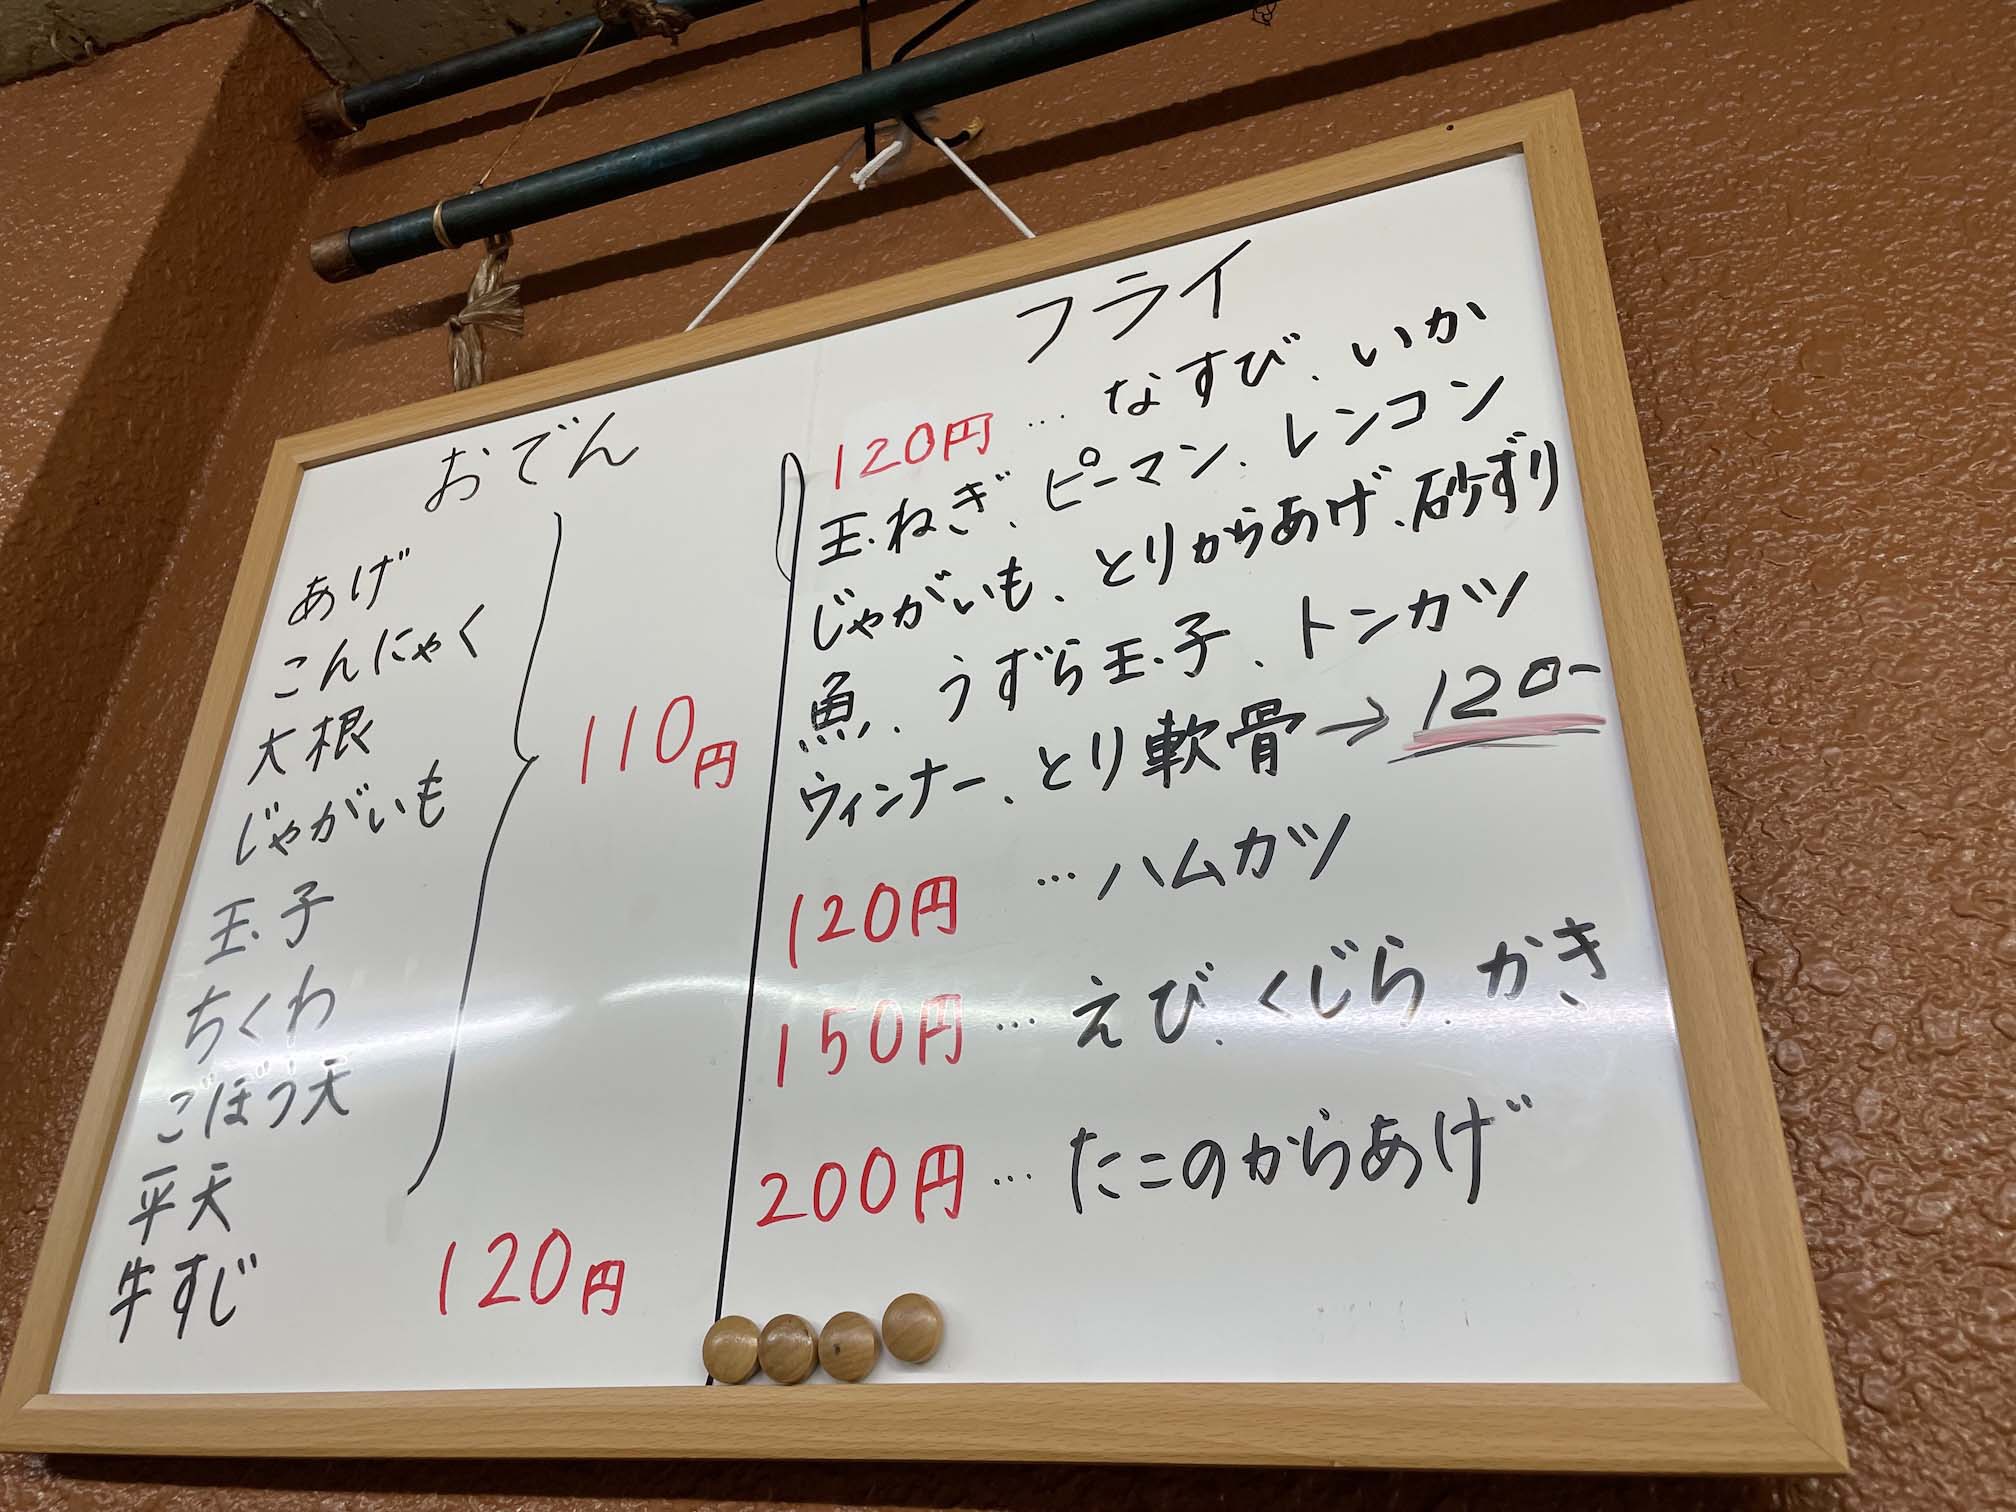 おでん
あげ
こんにゃく
大根
じゃがいも
玉子
ちくわ
ごぼう天
平天
110円
牛すじ 120円
フライ
120円…なすび、いか
玉ねぎ、ピーマン、レンコン
じゃがいも、とりからあげ、砂ずり
魚、うずら玉子、トンカツ
ウィンナー、とり軟骨→120-
120円…ハムカツ
150円…えび、くじら、かき
200円…たこのからあげ